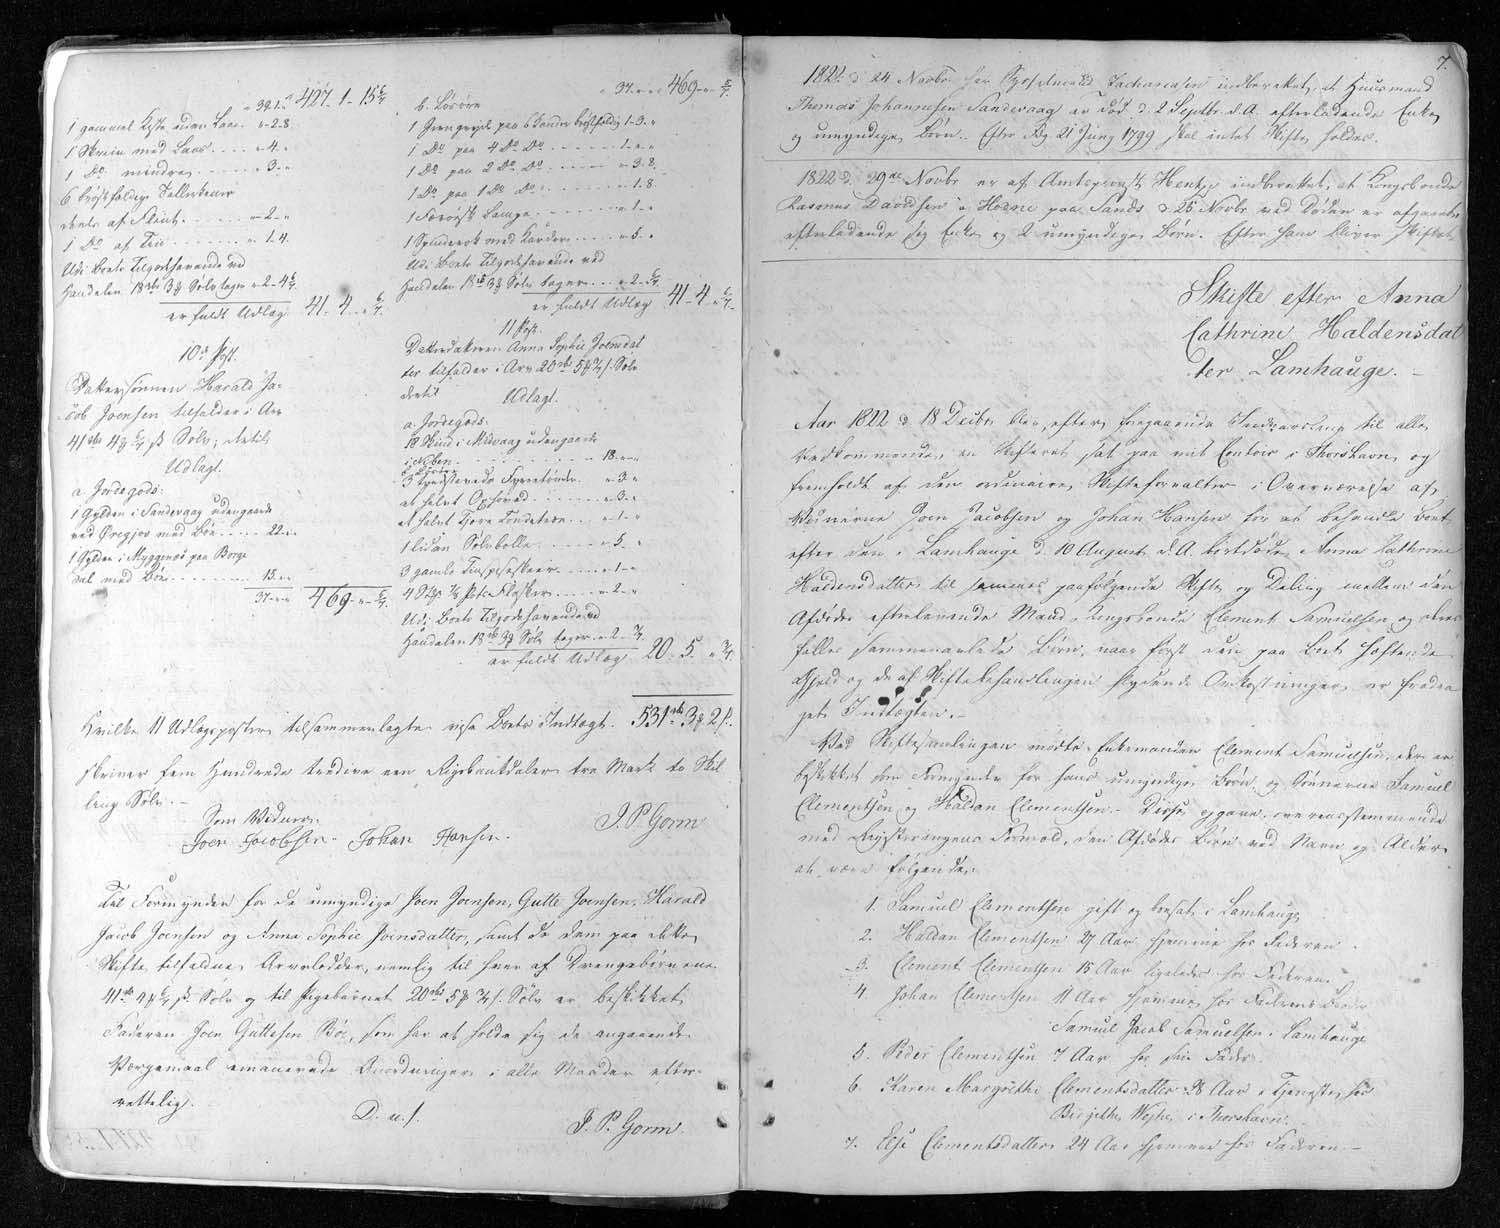 32.1. 427. 1-15 6/7
1 gammel Kiste uden Laas . "-2.8.
1 Skrin med Laas . . . . "-4-"
1 Do mindre . . . . "-3-"
6 brøstfældige Tellerkener
deels af Steint. . . . . . "-2-"
1 Do af Tin . . . . . . "-1.4.
Udi Boets Tilgodehavende ved
Handelen 18 rbs 3 § Sølv tager "-2-4 6/7
er fuldt Udlæg 41-4-" 6/7
10de Post.
Dattersønnen Harald Ja-
cob Joensen tilfalder i Arv
41 rbs 4 § 6/7 ß Sølv; dertil
Udlagt.
a. Jordegods:
1 Gylden i Sandevaag udengaards
ved Øregjov med Bøe . . . 22-"-"
1 Gylden i Myggenæs paa Borge
dal med Bøe . . . . . . . 15-"-"
37-"-" 469-"- 6/7
37-"-" 469-"- 6/7
b. Løsøre
1 Grengrejpe paa 6 Tønder brøstfældig 1-3-"
1 Do paa 4 Do Do . . . . . . 1-"-"
1 Do paa 2 Do Do . . . . . "-3.8.
1 Do paa 1 Do Do . . . . . "-1.8.
1 Færøisk Lampe . . . . . . "-1-"
1 Spinderok med Karder . . . . "-5-"
Udi Boets Tilgodehavende ved
Handelen 18 rbs 3 § Sølv tager . . . "-2- 6/7
er fuldt Udlæg 41-4-" 6/7
11 Post.
Datterdatteren Anna Sophie Joensdat
ter tilfalder i Arv 20 rbs 5 § 3/7 ß. Sølv
dertil
Udlagt.
a. Jordegods.
18 Skind i Midvaag udengaards
i Neben. . . . . . . . . . . 18-"-"
b. Løsøre
3 Tyndstavede Tyretønder . . . "-3-"
et halvt Oxhoved . . . . . . . "-3-"
et halvt Tjære Tøndetræ . . . "-1-"
1 liden Sølvbolle . . . . . . "-5-"
3 gamle Tinspiseskeer . . . . "-1-"
4 Stk. Flasker . . . . . "-2-"
Udi Boets Tilgodehavende ved
Handelen 18 rbs 3 § Sølv tager "-2- 3/7
er fuldt Udlæg 20. 5. " 3/7
Hvilke 11 Udlægsposter tilsammenlagte vise Boets Indtægt. 531 rbs 3 § 2 ß.
skriver fem Hundrede tredive een Rigsbankdaler tre Mark to Skil
ling Sølv. -
Som Vidner. J. P. Gorm
Joen Jacobsen - Johan Hansen.
Til Formynder for de umyndige Joen Joensen, Gutte Joensen, Harald
Jacob Joensen og Anna Sophie Joensdatter, samt de dem paa dette
Skifte tilfaldne Arvelodder, nemlig til hver af Drengebørnene
41 rbs 4 § 6/7 ß. Sølv og til Pigebarnet 20 rbs 5 § 3/7 ß. Sølv er beskikket
Faderen Joen Guttesen Bøe, som har at holde sig de angaaende
Værgemaal emanerede Anordninger i alle Maader efter-
rettelig. -
D. u. s.
J. P. Gorm.
7.
1822. d. 24 Novbr har Sysselmand Zachariasen indberettet, at Huusmand
Thomas Johannesen Sandevaag er død d. 2 Septbr. d. A. efterladende Enke
og umyndige Børn. Efter Pg 21 Juny 1799 skal intet Skifte holdes.
1822 d. 29de Novbr er af Amtsprovst Hentze indberettet, at Kongsbonde
Rasmus Davidsen i Huusene paa Sands d. 25 Novbr ved Døden er afgaaet
efterladende sig Enke og 2 umyndige Børn. Efter ham bliver skiftet.
Skifte efter Anna
Cathrine Haldensdat
ter Lamhauge. -
Aar 1822 d. 18 Decbr blev, efter foregaaende Indvarsling til alle
Vedkommende, en Skifteret sat paa mit Contoir i Thorshavn og
fremholdt af den ordinaire Skifteforvalter i Overværelse af
Vidnerne Joen Jacobsen og Johan Hansen for at behandle Boet
efter den i Lamhauge d. 10 August d. A. bortdøde Anna Cathrine
Haldensdatter til sammes paafølgende Skifte og Deling mellem den
Afdødes efterlevende Mand Kongsbonde Clement Samuelsen og deres
fælles sammenavlede Børn, naar først den paa Boet hæftende
Gjeld og de af Skiftebehandlingen flydende Omkostninger er fradra
get Indtægten. -
Ved Skiftesamlingen mødte Enkemanden Clement Samuelsen, der er
beskikket som Formynder for hans umyndige Børn og Sønnerne Samuel
Clementsen og Haldan Clementsen. - Disse opgave, overensstemmende
med Registreringens Formeld, den Afdødes Børn ved Navn og Alder
at være følgende:
1. Samuel Clementsen gift og bosat i Lamhauge
2. Haldan Clementsen 27 Aar hjemme hos Faderen.
3. Clement Clementsen 15 Aar ligeledes hos Faderen.
4. Johan Clementsen 11 Aar hjemme hos Faderens Broder
Samuel Jacob Samuelsen i Lamhauge
5. Peder Clementsen 7 Aar hos sin Fader.
6. Karen Margrethe Clementsdatter 28 Aar i Tjeneste hos
Birgithe Weyhe i Thorshavn.
7. Else Clementsdatter 24 Aar hjemme hos Faderen. -